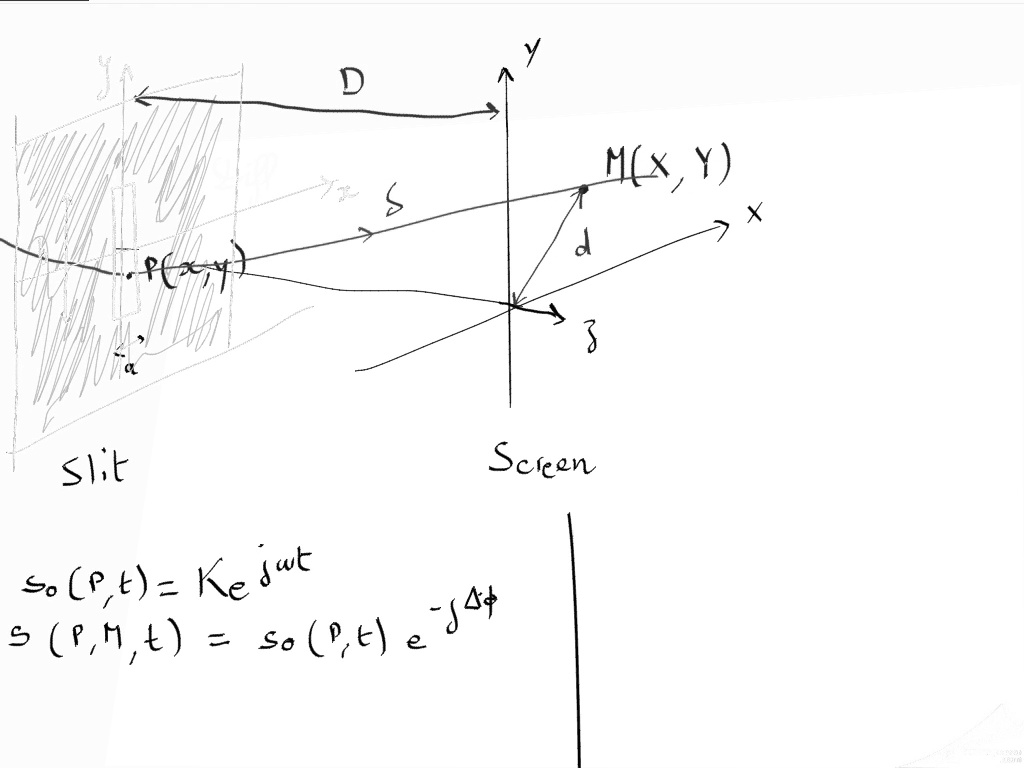 y
D
Y
M(X, Y)
x
S
X
P(x, y)
d
z
a
Slit
Screen
so(P,t) = Ke^jωt
s(P,M,t) = so(P,t) e^-jΔϕ